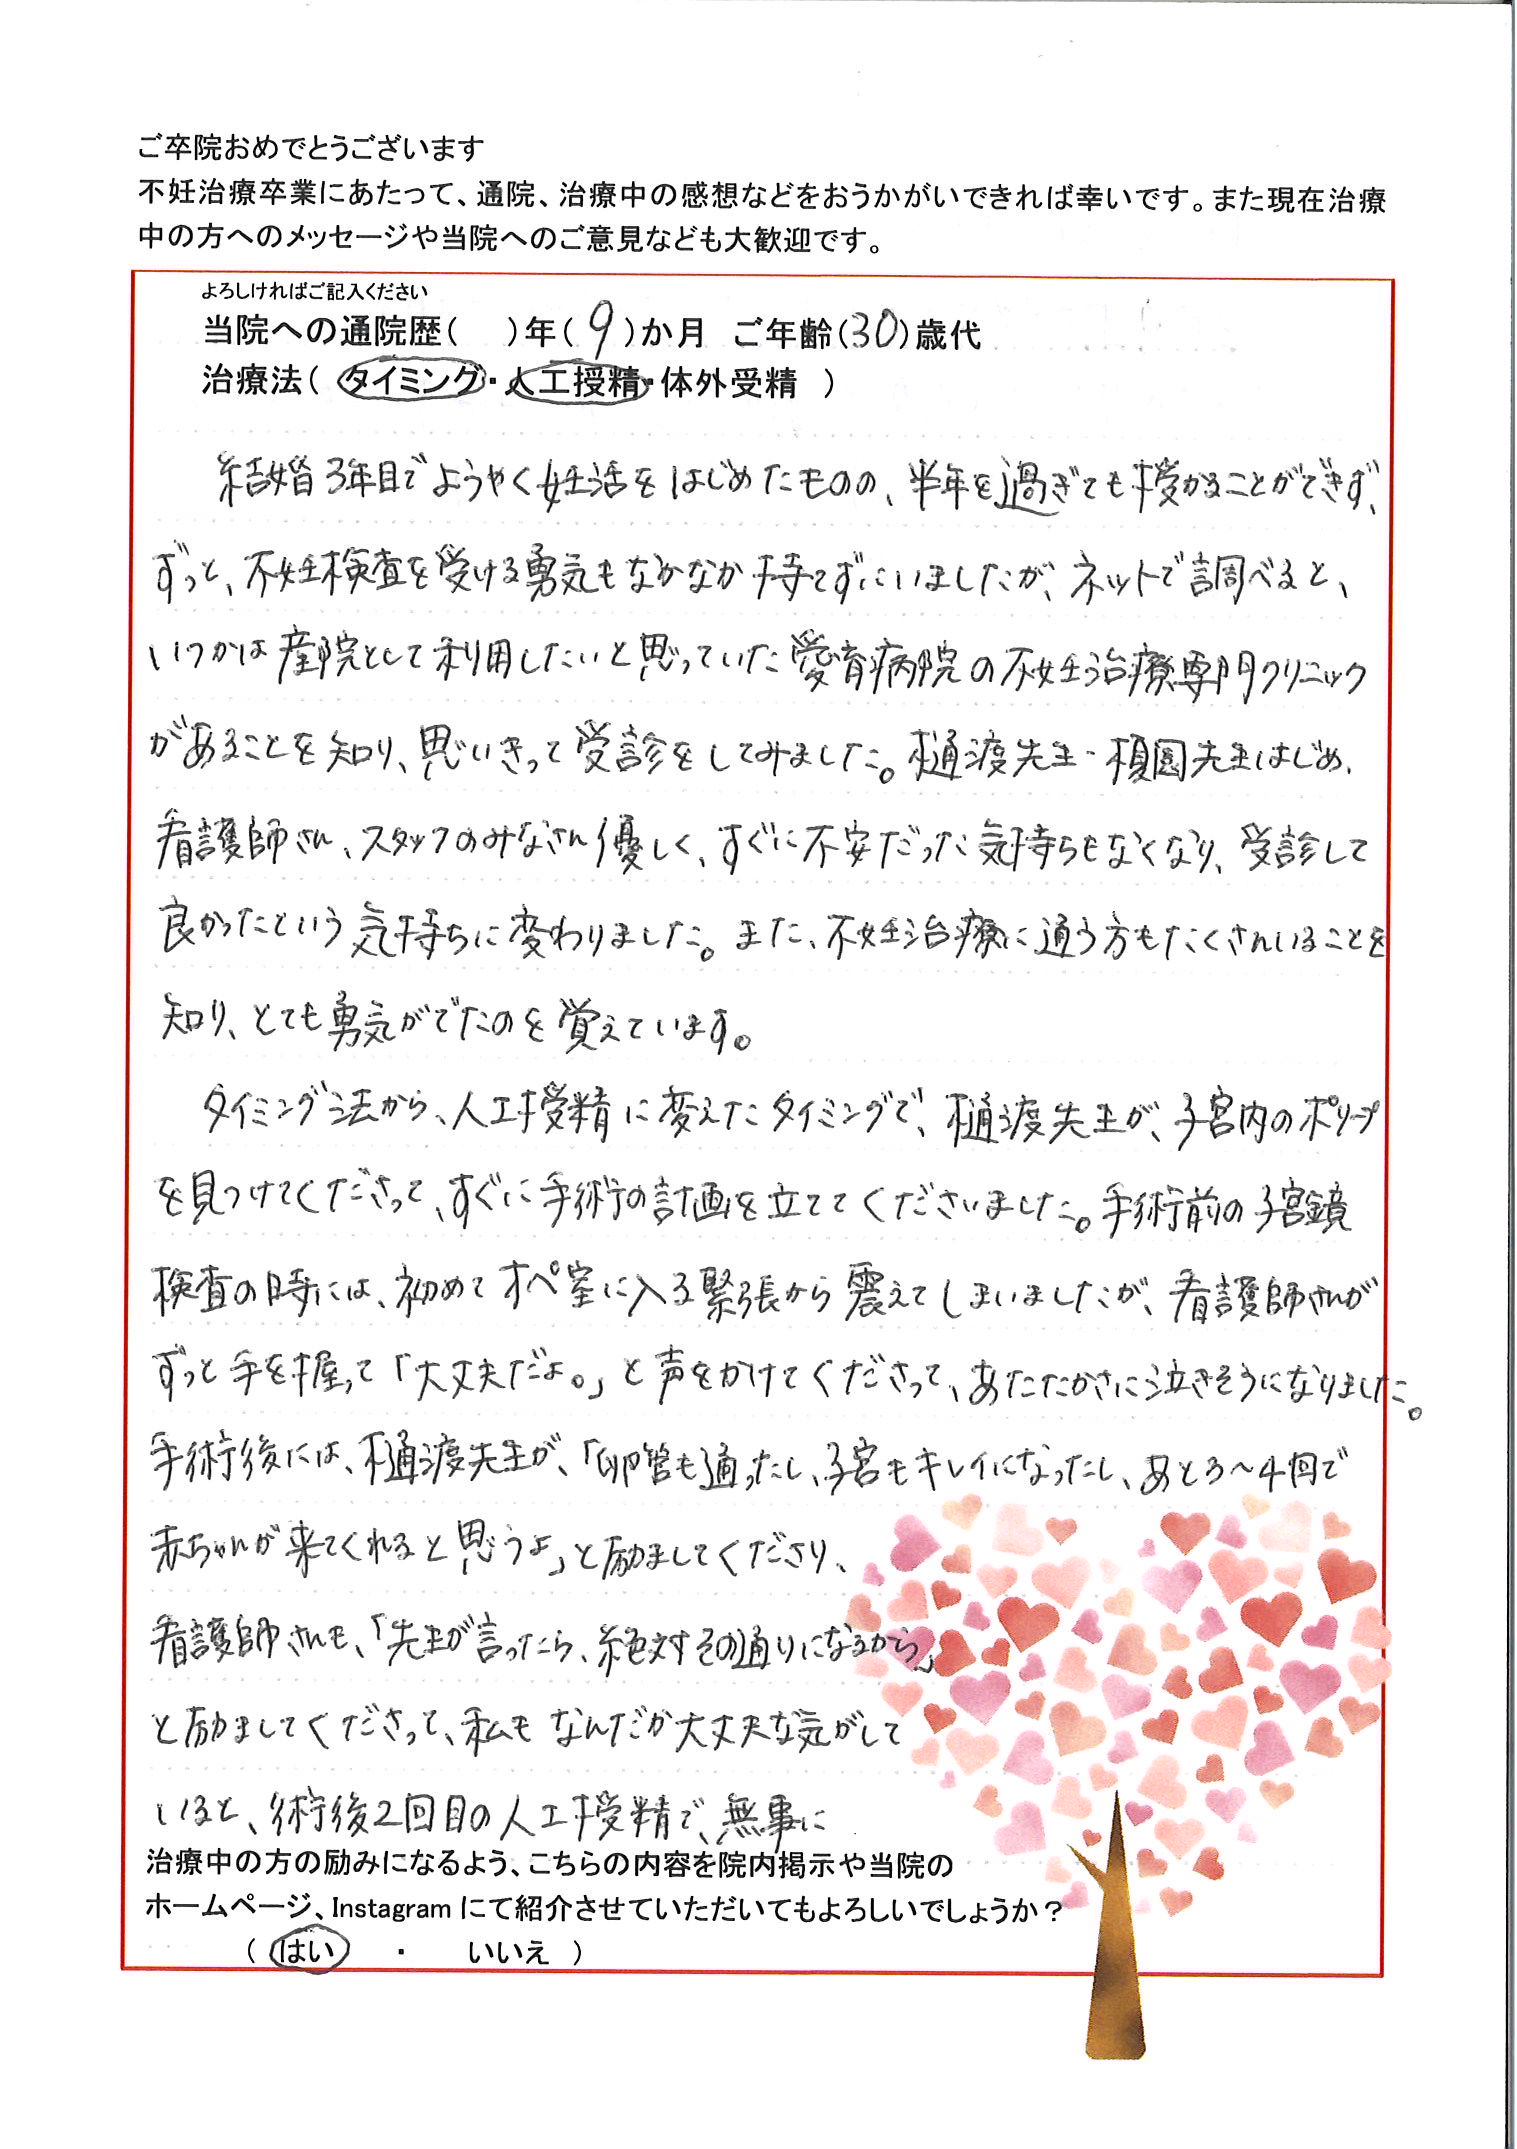 ご卒院おめでとうございます
不妊治療卒業にあたって、通院、治療中の感想などをおうかがいできれば幸いです。また現在治療
中の方へのメッセージや当院へのご意見なども大歓迎です。
よろしければご記入ください
当院への通院歴(　)年(9)か月　ご年齢(30)歳代
治療法(　タイミング・人工授精・体外受精　)
結婚3年目でようやく妊活をはじめたものの、半年を過ぎても授かることができず、
ずっと、不妊検査を受ける勇気もなかなか持てずにいましたが、ネットで調べると、
いつかは産院として利用したいと思っていた愛育病院の不妊治療専門クリニック
があることを知り、思いきって受診をしてみました。樋渡先生・榎園先生はじめ、
看護師さん、スタッフのみなさん優しく、すぐに不安だった気持ちもなくなり、受診して
良かったという気持ちに変わりました。また、不妊治療に通う方もたくさんいることを
知り、とても勇気がでたのを覚えています。
タイミング法から、人工授精に変えたタイミングで、樋渡先生が、子宮内のポリープ
を見つけてくださって、すぐに手術の計画を立ててくださいました。手術前の子宮鏡
検査の時には、初めてオペ室に入る緊張から震えてしまいましたが、看護師さんが
ずっと手を握って「大丈夫だよ。」と声をかけてくださって、あたたかさに泣きそうになりました。
手術後には、樋渡先生が、「卵管も通ったし、子宮もキレイになったし、あと3〜4回で
赤ちゃんが来てくれると思うよ」と励ましてくださり、
看護師さんも、「先生が言ったら、絶対その通りになるから」
と励ましてくださって、私もなんだか大丈夫な気がして
いると、術後2回目の人工授精で、無事に
治療中の方の励みになるよう、こちらの内容を院内掲示や当院の
ホームページ、Instagramにて紹介させていただいてもよろしいでしょうか？
(　はい　・　いいえ　)